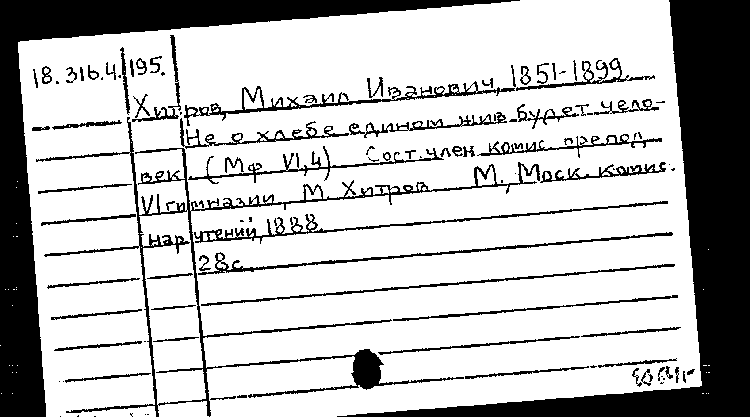 18.316.4.195.
Хитров, Михаил Иванович, 1851-1899.
Не о хлебе едином жив будет чело-
век. (Мф. VI,4) Сост. член комис. препод.
VI гимназии, М. Хитров. М., Моск. комис.
нар. чтений, 1888.
28с.